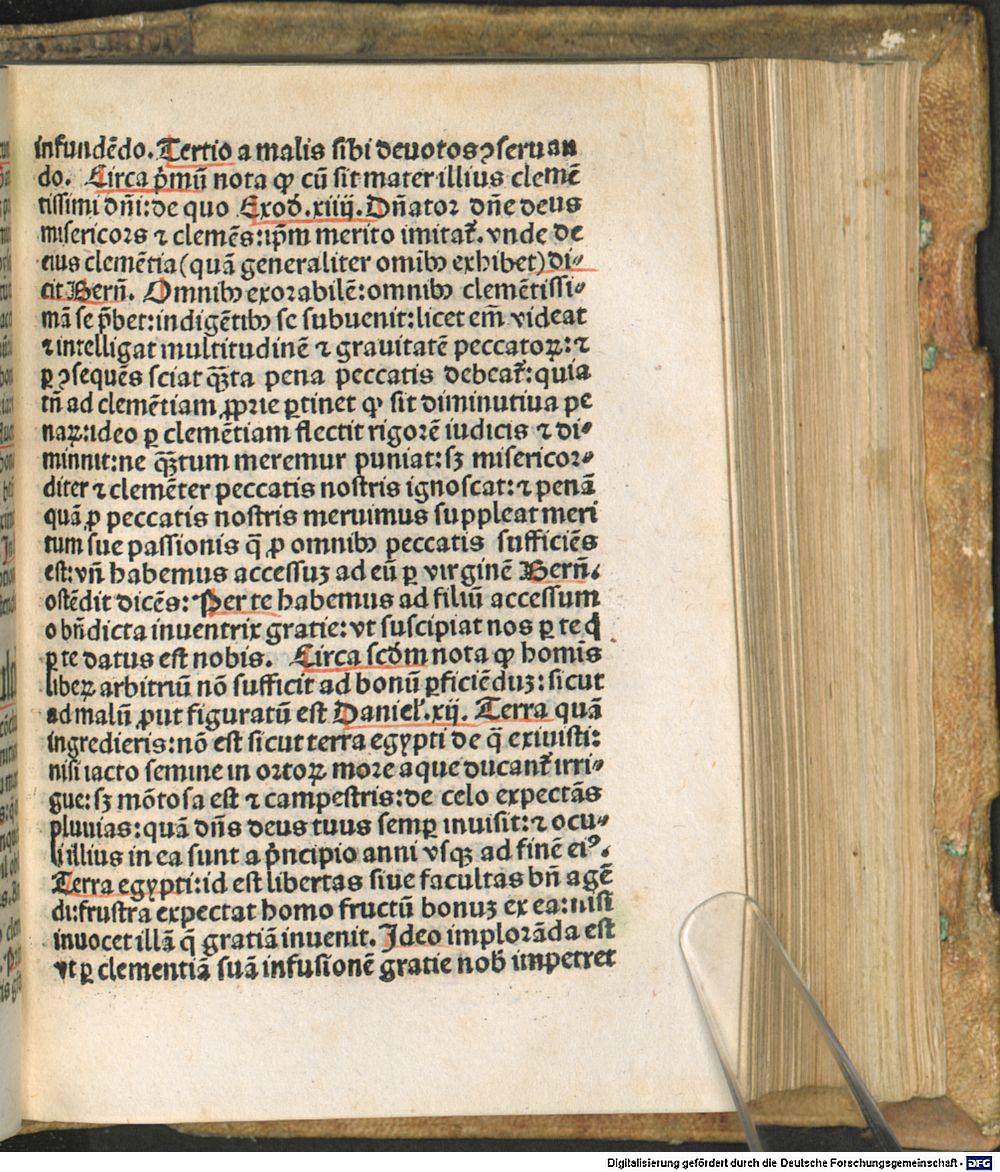 infundēdo. Tertio a malis sibi deuotos ꝯseruan
do. Circa p̄mū nota ꝙ cū sit mater illius clemē
tissimi dn̄i: de quo Exod. xiiij. Dn̄ator dn̄e deus
misericors ⁊ clemēs: ip̄m merito imitat᷑. vnde de
eius clemētia (quā generaliter omībꝰ exhibet) di⸗
cit Bern̄. Omnibꝰ exorabilē: omnibꝰ clemētissi⸗
mā se p̄bet: indigētibꝰ se subuenit: licet em̄ videat
⁊ intelligat multitudinē ⁊ grauitatē peccatoꝝ: ⁊
ꝑ ꝯsequēs sciat qᷓ̄ta pena peccatis debeat᷑: quia
tn̄ ad clemētiam ꝓprie ꝑtinet ꝙ sit diminutiua pe
naꝝ: ideo ꝑ clemētiam flectit rigorē iudicis ⁊ di⸗
minnit: ne qᷓ̄tum meremur puniat: sꝫ misericor⸗
diter ⁊ clemēter peccatis nostris ignoscat: ⁊ penā
quā ꝓ peccatis nostris meruimus suppleat meri
tum sue passionis q̄ ꝓ omnibꝰ peccatis sufficiēs
est: vn̄ habemus accessuꝫ ad eū ꝑ virginē Bern̄.
ostēdit dicēs: Per te habemus ad filiū accessum
o bn̄dicta inuentrix gratie: vt suscipiat nos ꝑ te q̇
ꝑ te datus est nobis. Circa scd̄m nota ꝙ homīs
libeꝝ arbitriū nō sufficit ad bonū ꝑficiēduꝫ: sicut
ad malū ꝓut figuratū est Daniel̓. xij. Terra quā
ingredieris: nō est sicut terra egypti de q̄ exiuisti:
nisi iacto semine in ortoꝝ more aque ducant᷑ irri⸗
gue: sꝫ mōtosa est ⁊ campestris: de celo expectās
pluuias: quā dn̄s deus tuus semꝑ inuisit: ⁊ ocu⸗
li illius in ea sunt a p̄ncipio anni vsqꝫ ad finē eiꝰ.
Terra egypti: id est libertas siue facultas bn̄ agē
di: frustra expectat homo fructū bonuꝫ ex ea: nisi
inuocet illā q̄ gratiā inuenit. Ideo implorāda est
vt ꝑ clementiā suā infusionē gratie nob̄ impetret
Digitalisierung gefördert durch die Deutsche Forschungsgemeinschaft - DFG